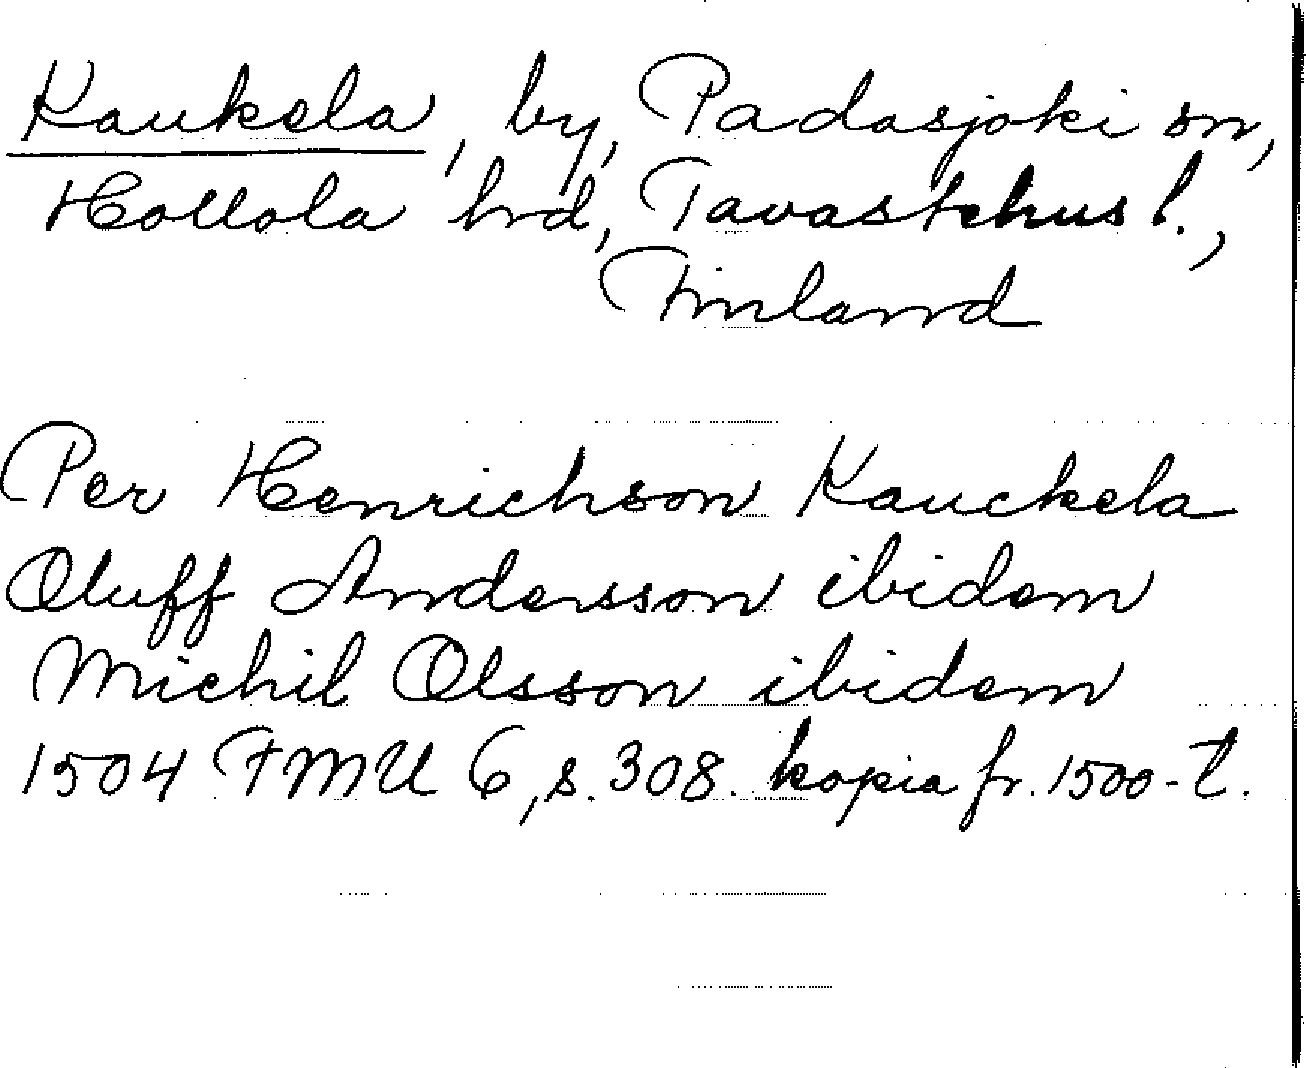 Kaukela, by, Padasjoki sn,
Hollola hrd, Tavastehus l.,
Finland
Per Henrichson Kauckela
Oluff Andersson ibidem
Michil Olsson ibidem
1504 FMU 6, s. 308. kopia fr. 1500-t.